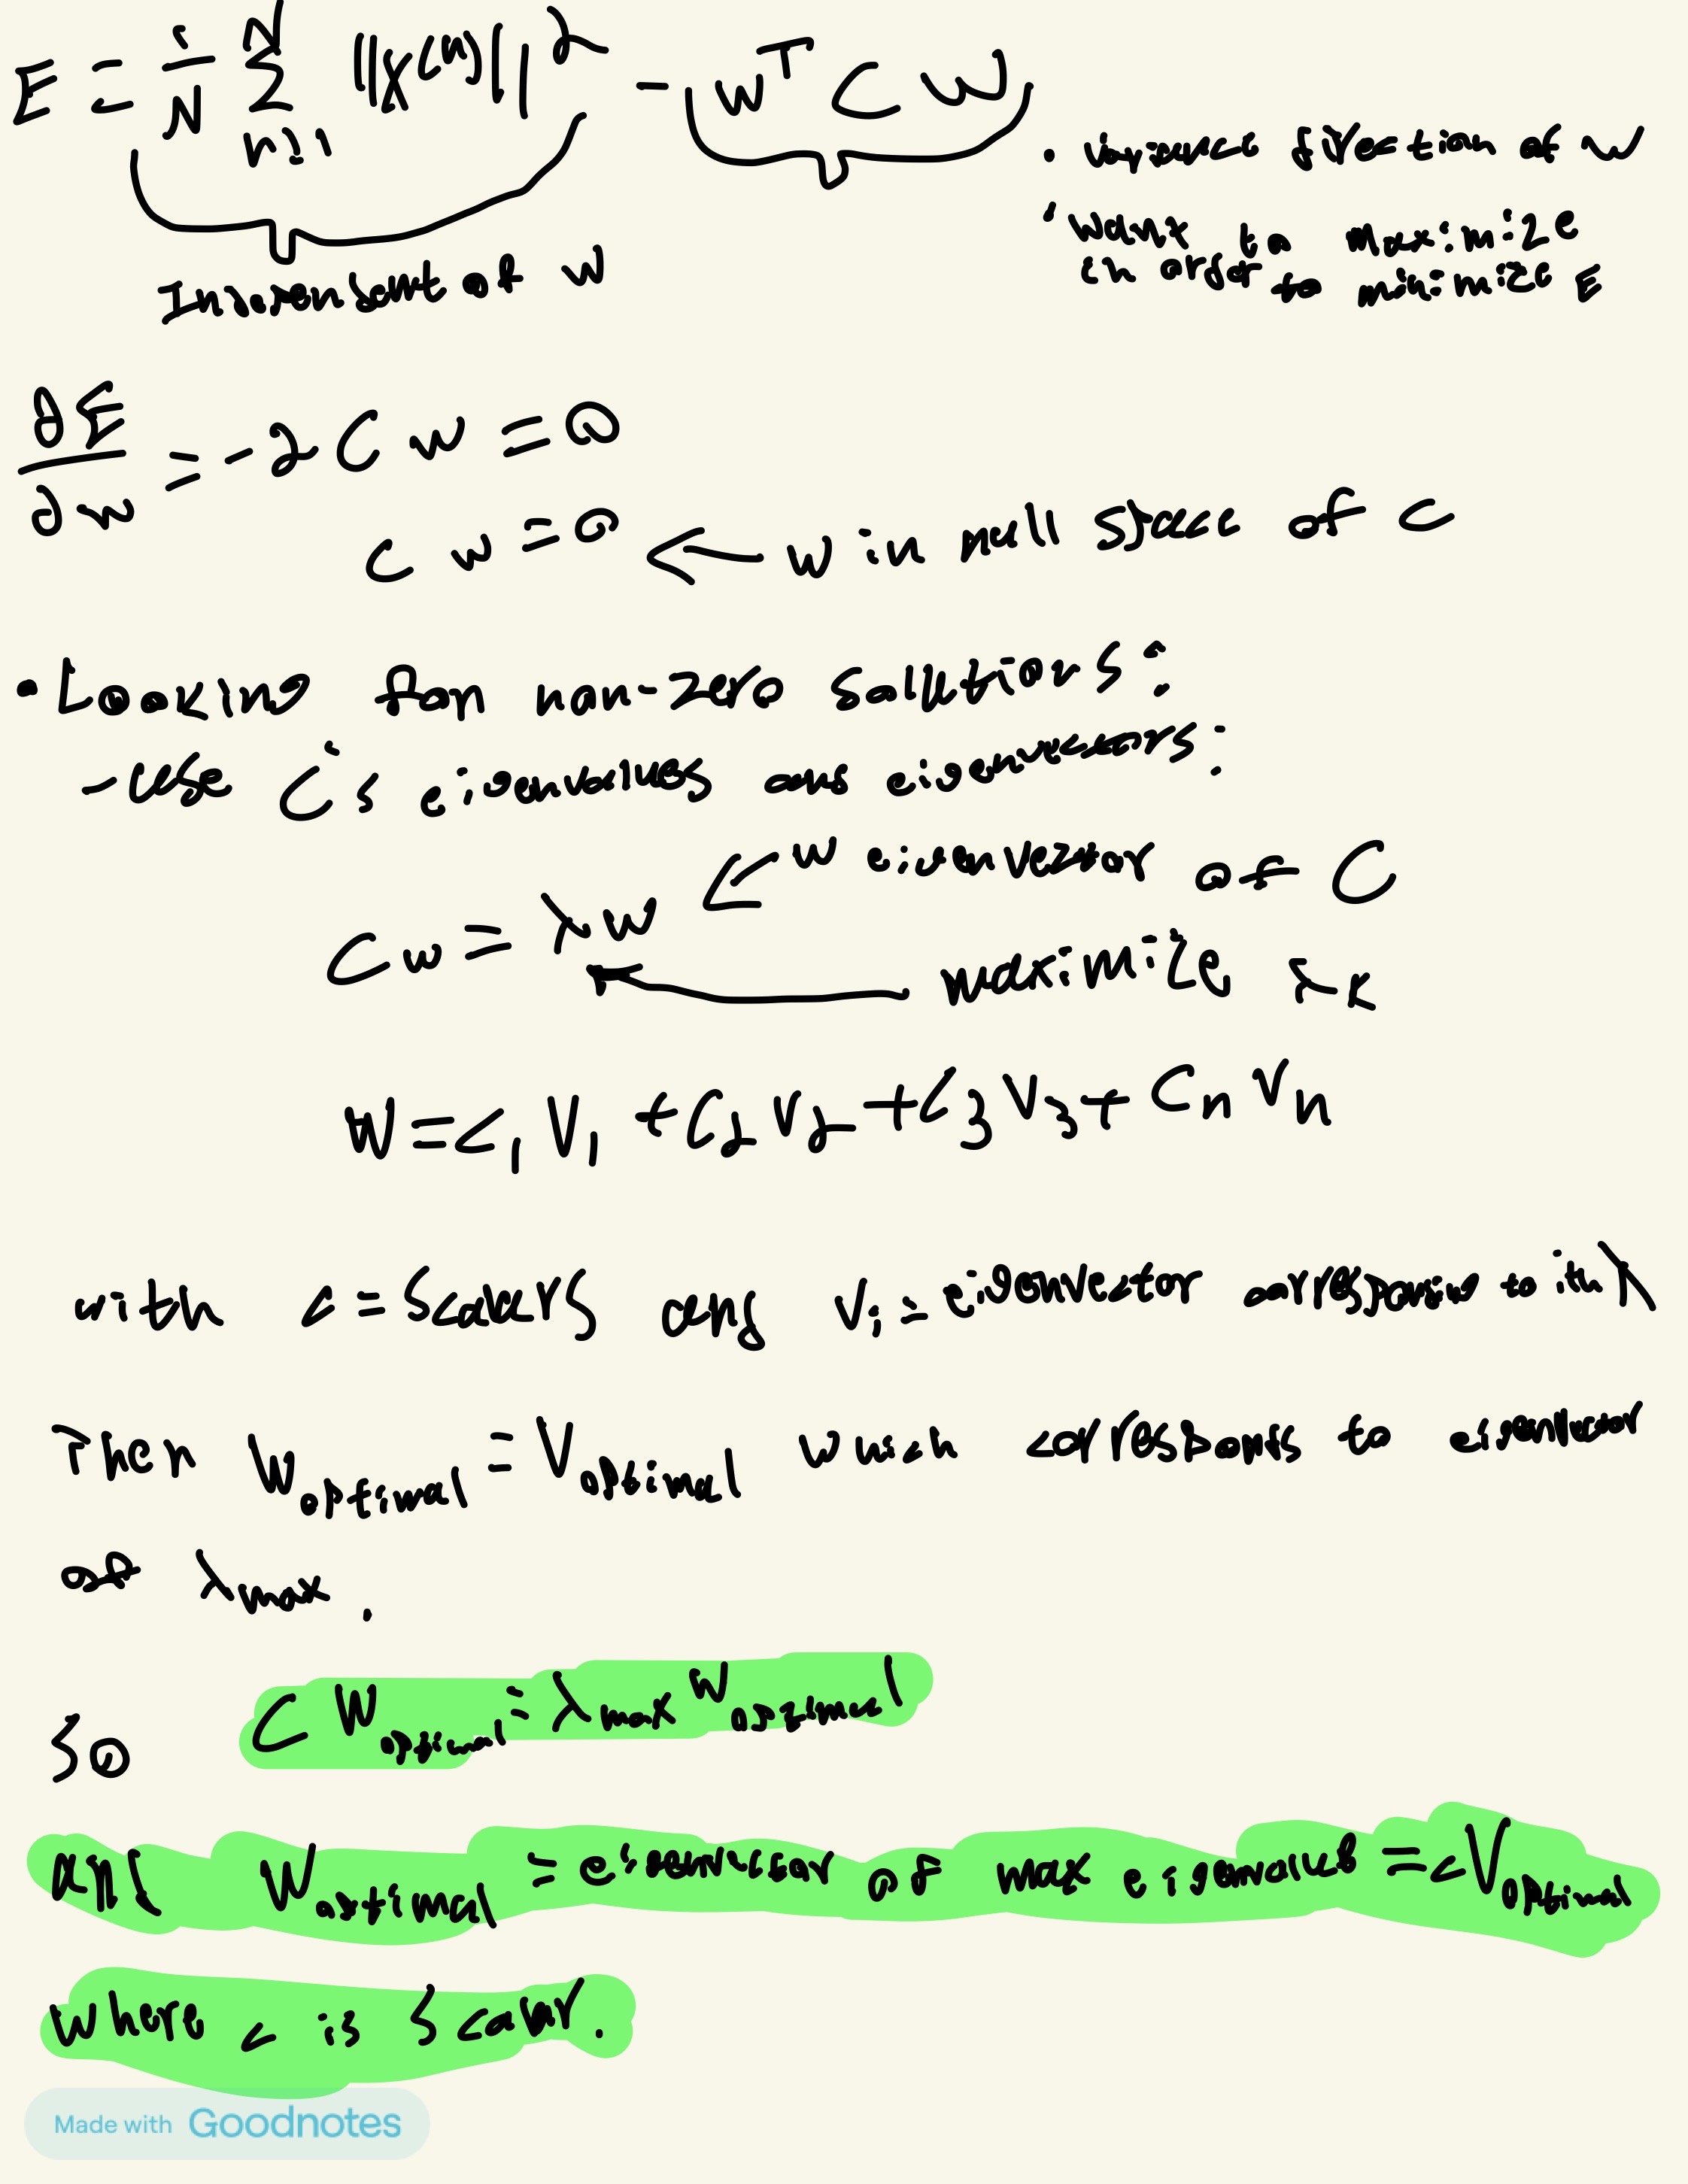 E = 1/N Σ_{n=1}^{N} ||x^{(n)}||² - w^T C w
• variance direction of w
• want to maximize
in order to minimize E
Independent of w
∂E/∂w = -2 C w = 0
C w = 0 ← w in null space of C
• Looking for non-zero solutions:
- use C's eigenvalues and eigenvectors:
← w eigenvector of C
C w = λ w
← maximize λ_K
W = c₁ V₁ + c₂ V₂ + c₃ V₃ + c_n V_n
with c = scalars and v_i = eigenvector corresponding to ith λ
Then W_optimal = V_optimal which corresponds to eigenvector
of λ_max.
So C W_optimal = λ_max W_optimal
and W_optimal = eigenvector of max eigenvalue = c V_optimal
where c is scalar.
Made with Goodnotes